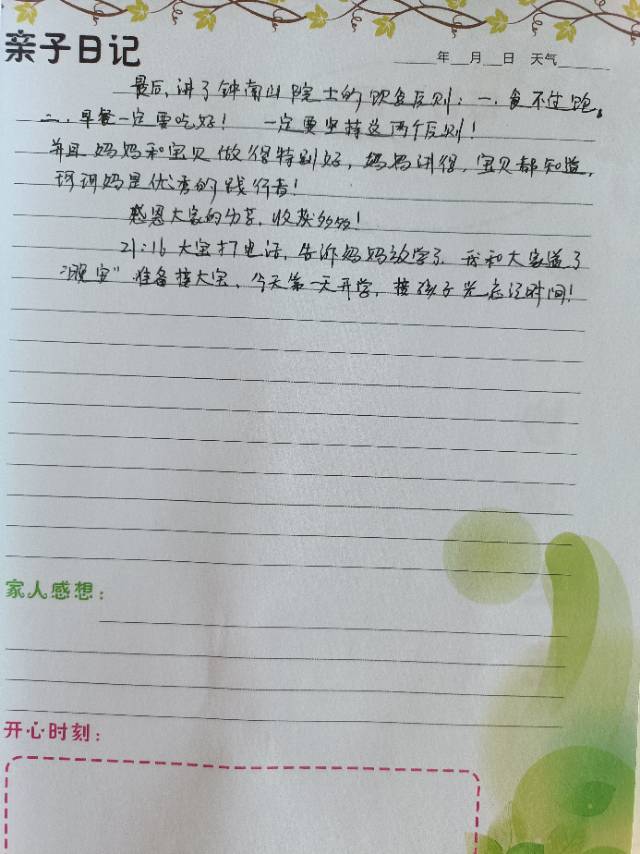 亲子日记
年 月 日 天气
最后,讲了钟南山院士的饮食原则:一.食不过饱。
二.早餐一定要吃好! 一定要坚持这两个原则!
并且妈妈和宝贝做得特别好,妈妈讲得,宝贝都知道,
珂珂妈是优秀的践行者!
感恩大家的分享,收获多多!
21:16 大宝打电话,告诉妈妈放学了 我和大家道了
“晚安”准备接大宝、今天第一天开学,接孩子光忘记时间!
家人感想:
开心时刻: